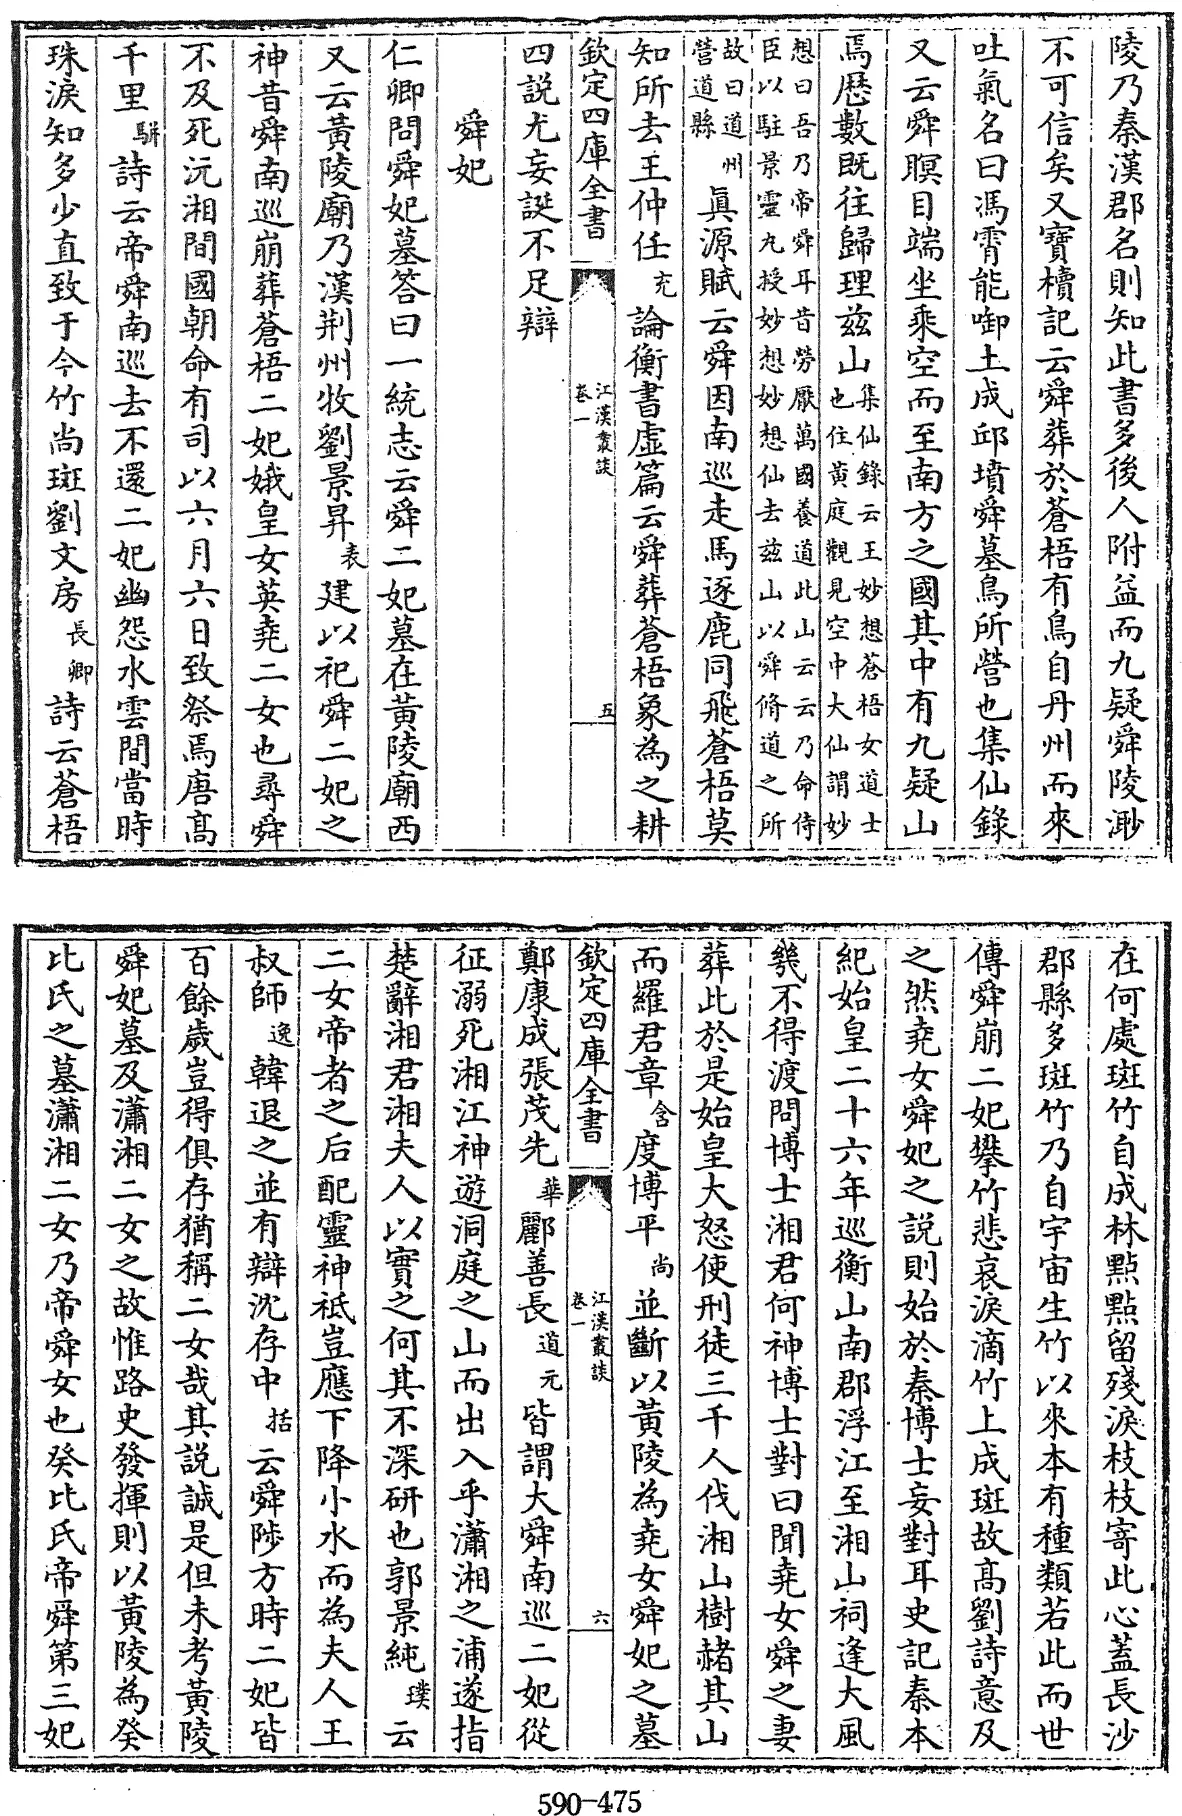 陵乃秦漢郡名則知此書多後人附益而九疑舜陵渺
不可信矣又寶櫝記云舜葬於蒼梧有鳥自丹州而來
吐氣名曰馮霄能啣土成邱墳舜墓鳥所營也集仙錄
又云舜瞑目端坐乘空而至南方之國其中有九疑山
焉歷數既往歸理茲山集仙錄云王妙想蒼梧女道士也住黃庭觀見空中大仙謂妙
想曰吾乃帝舜耳昔勞厭萬國養道此山云云乃命侍臣以駐景靈丸授妙想妙想仙去茲山以舜脩道之所
故曰道州營道縣眞源賦云舜因南巡走馬逐鹿同飛蒼梧莫
知所去王仲任充論衡書虛篇云舜葬蒼梧象為之耕
欽定四庫全書 江漢叢談 卷一 五
四說尤妄誕不足辯
舜妃
仁卿問舜妃墓答曰一統志云舜二妃墓在黃陵廟西
又云黃陵廟乃漢荆州牧劉景昇表建以祀舜二妃之
神昔舜南巡崩葬蒼梧二妃娥皇女英堯二女也尋舜
不及死沅湘間國朝命有司以六月六日致祭焉唐高
千里駢詩云帝舜南巡去不還二妃幽怨水雲間當時
珠淚知多少直致于今竹尚斑劉文房長卿詩云蒼梧
在何處斑竹自成林點點留殘淚枝枝寄此心蓋長沙
郡縣多斑竹乃自宇宙生竹以來本有種類若此而世
傳舜崩二妃攀竹悲哀淚滴竹上成斑故高劉詩意及
之然堯女舜妃之說則始於秦博士妄對耳史記秦本
紀始皇二十六年巡衡山南郡浮江至湘山祠逢大風
幾不得渡問博士湘君何神博士對曰聞堯女舜之妻
葬此於是始皇大怒使刑徒三千人伐湘山樹赭其山
而羅君章含度博平尚並斷以黃陵為堯女舜妃之墓
欽定四庫全書 江漢叢談 卷一 六
鄭康成張茂先華酈善長道元皆謂大舜南巡二妃從
征溺死湘江神遊洞庭之山而出入乎瀟湘之浦遂指
楚辭湘君湘夫人以實之何其不深研也郭景純璞云
二女帝者之后配靈神祇豈應下降小水而為夫人王
叔師逸韓退之並有辯沈存中括云舜陟方時二妃皆
百餘歲豈得俱存猶稱二女哉其說誠是但未考黃陵
舜妃墓及瀟湘二女之故惟路史發揮則以黃陵為癸
比氏之墓瀟湘二女乃帝舜女也癸比氏帝舜第三妃
590-475